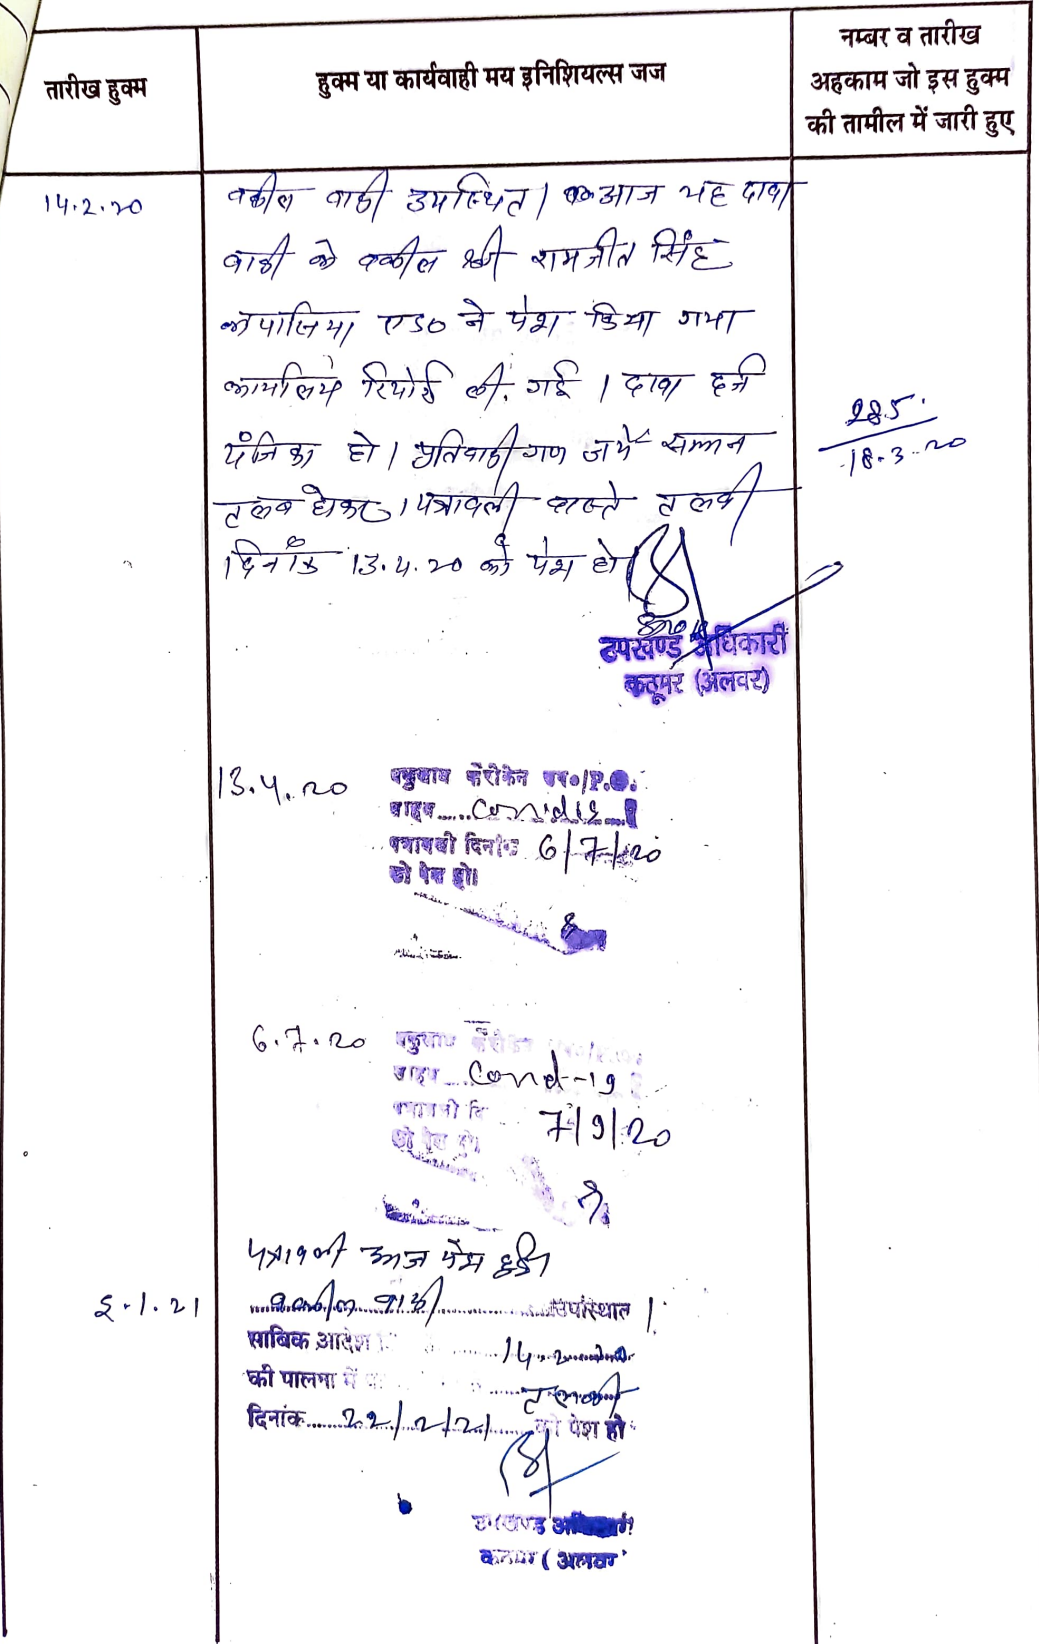 तारीख हुक्म
हुक्म या कार्यवाही मय इनिशियल्स जज
नम्बर व तारीख
अहकाम जो इस हुक्म
की तामील में जारी हुए
14.2.20
वकील वादी उपस्थित। आज यह दावा
वादी के वकील श्री रामजीत सिंह
एड० ने पेश किया गया
कार्यालय रिपोर्ट ली गई। दावा दर्ज
पंजिका हो। प्रतिवादीगण जर्ये सम्मन
तलब होकर। पत्रावली वास्ते तलबी
दिनांक 13.4.20 को पेश हो
285
18.3.20
उपखण्ड अधिकारी
कठूमर (अलवर)
13.4.20
P.O.
पत्रावली दिनांक 6/7/20
को पेश हो।
6.7.20
Covid-19
7/9/20
को पेश हो
पत्रावली आज पेश हुई।
5.1.21
वकील वादी उपस्थित।
साबिक आदेश 14.2
की पालना में
तलबी
दिनांक 22/2/21 को पेश हो
उपखण्ड अधिकारी
कठूमर (अलवर